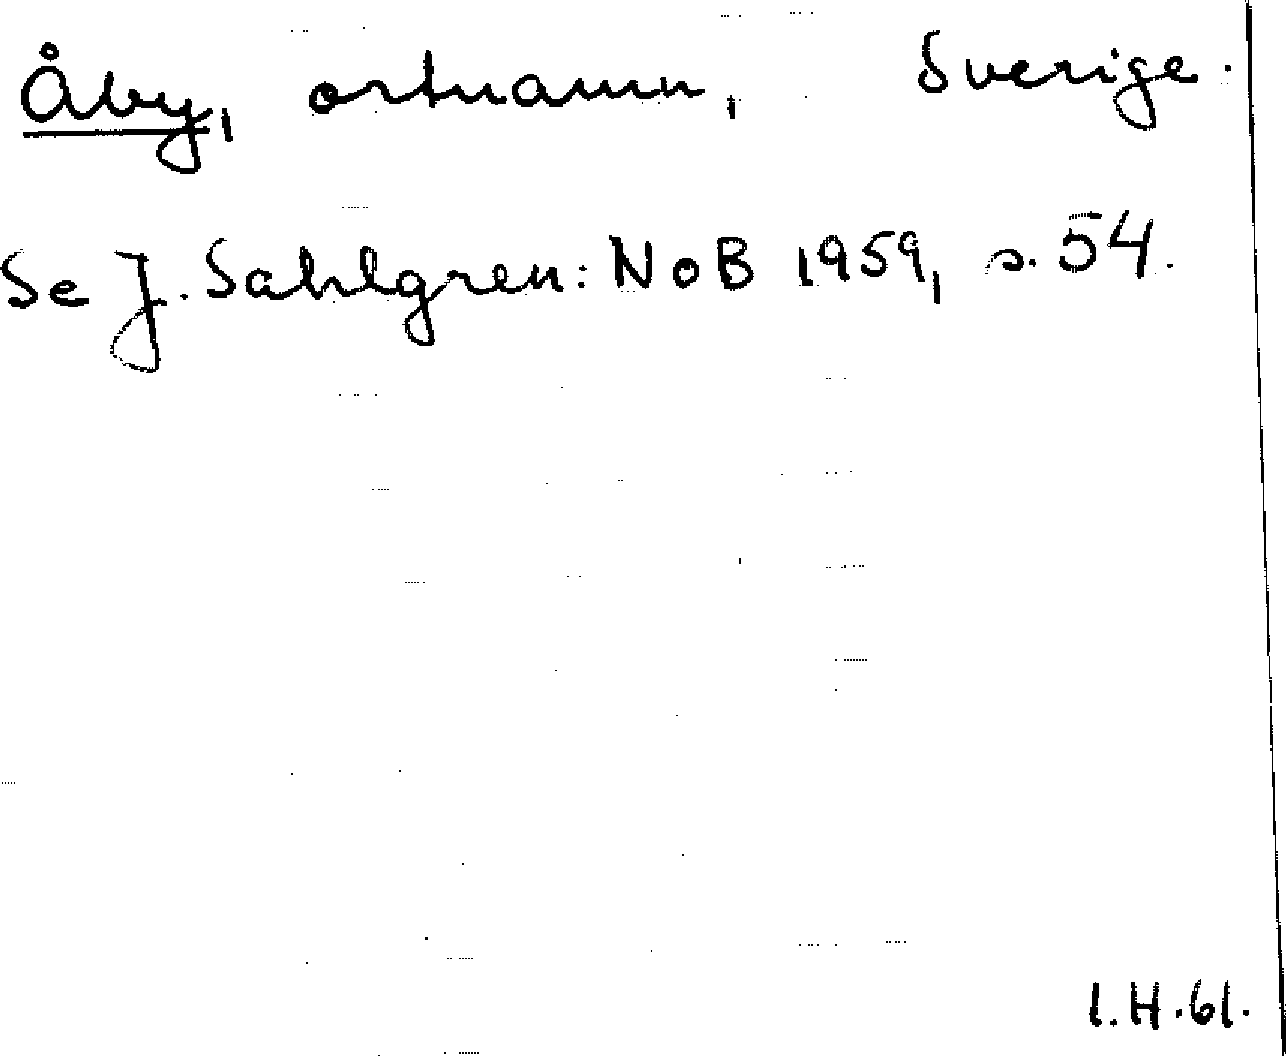 Åby, ortnamn, Sverige.
Se J. Sahlgren: NoB 1959, s. 54.
I.H.61.